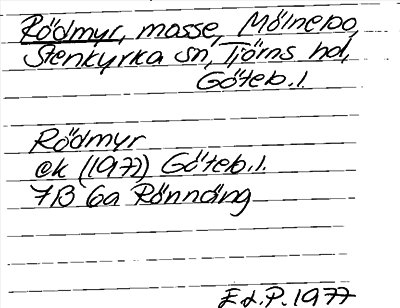 Rödmyr, mosse, Mölnebo,
Stenkyrka sn, Tjörns hd,
Göteb. l.
Rödmyr
ek (1977) Göteb. l.
7B 6a Rönnäng
E L. P. 1977